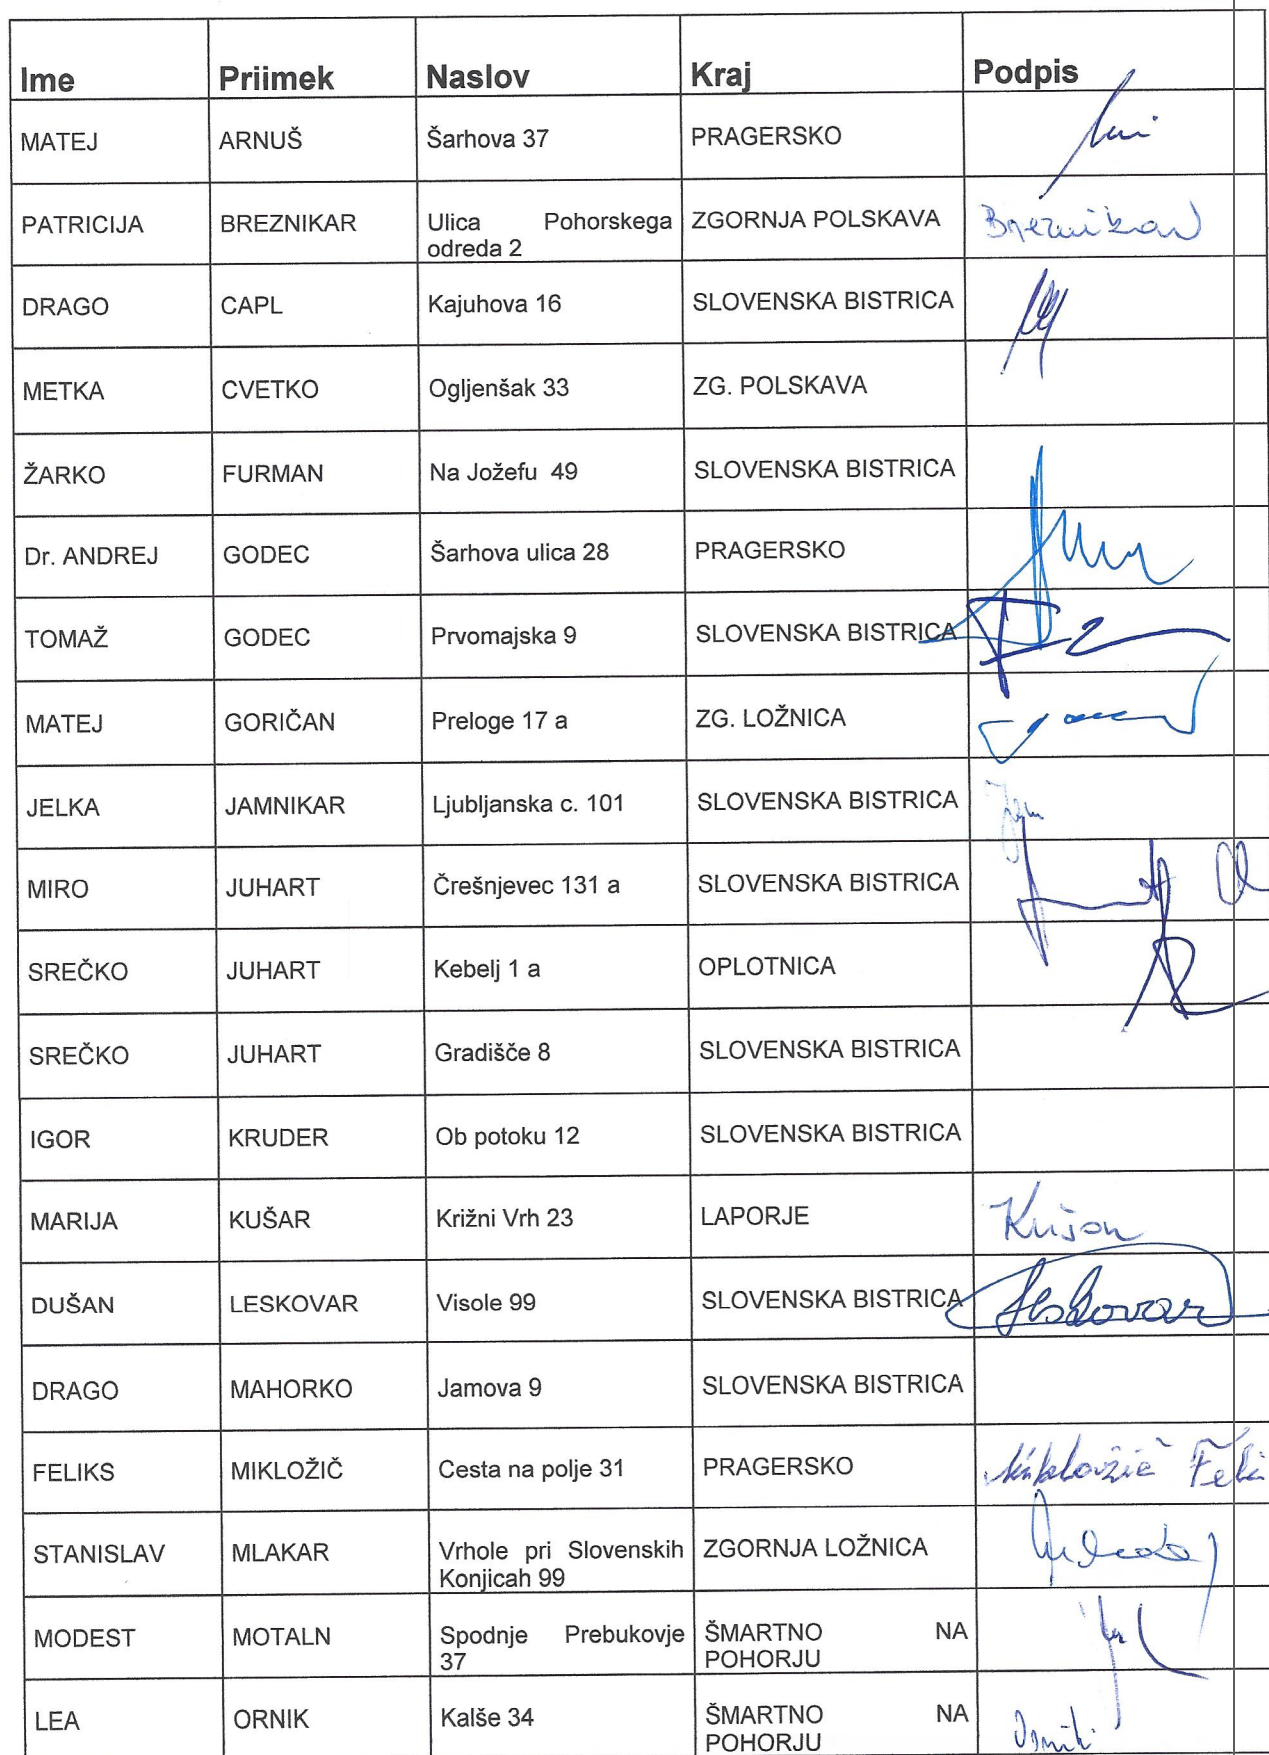 Ime Priimek Naslov Kraj Podpis
MATEJ ARNUŠ Šarhova 37 PRAGERSKO
PATRICIJA BREZNIKAR Ulica Pohorskega ZGORNJA POLSKAVA Breznikar
odreda 2
DRAGO CAPL Kajuhova 16 SLOVENSKA BISTRICA
METKA CVETKO Ogljenšak 33 ZG. POLSKAVA
ŽARKO FURMAN Na Jožefu 49 SLOVENSKA BISTRICA
Dr. ANDREJ GODEC Šarhova ulica 28 PRAGERSKO
TOMAŽ GODEC Prvomajska 9 SLOVENSKA BISTRICA
MATEJ GORIČAN Preloge 17 a ZG. LOŽNICA
JELKA JAMNIKAR Ljubljanska c. 101 SLOVENSKA BISTRICA
MIRO JUHART Črešnjevec 131 a SLOVENSKA BISTRICA
SREČKO JUHART Kebelj 1 a OPLOTNICA
SREČKO JUHART Gradišče 8 SLOVENSKA BISTRICA
IGOR KRUDER Ob potoku 12 SLOVENSKA BISTRICA
MARIJA KUŠAR Križni Vrh 23 LAPORJE Kušar
DUŠAN LESKOVAR Visole 99 SLOVENSKA BISTRICA Leskovar
DRAGO MAHORKO Jamova 9 SLOVENSKA BISTRICA
FELIKS MIKLOŽIČ Cesta na polje 31 PRAGERSKO
STANISLAV MLAKAR Vrhole pri Slovenskih ZGORNJA LOŽNICA
Konjicah 99
MODEST MOTALN Spodnje Prebukovje ŠMARTNO NA
37 POHORJU
LEA ORNIK Kalše 34 ŠMARTNO NA
POHORJU Ornik